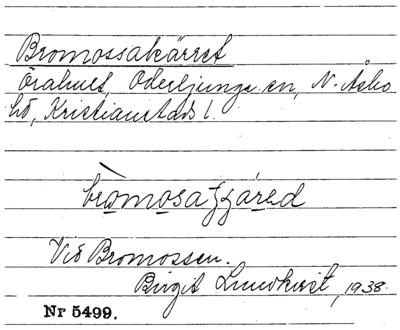 Bromossakärret
Örahult, Oderljunga sn, N. Åsbo
hd, Kristianstads l.
bròmosaʃʃǻred
Vid Bromossen.
Birgit Lundkvist, 1938.
Nr 5499.